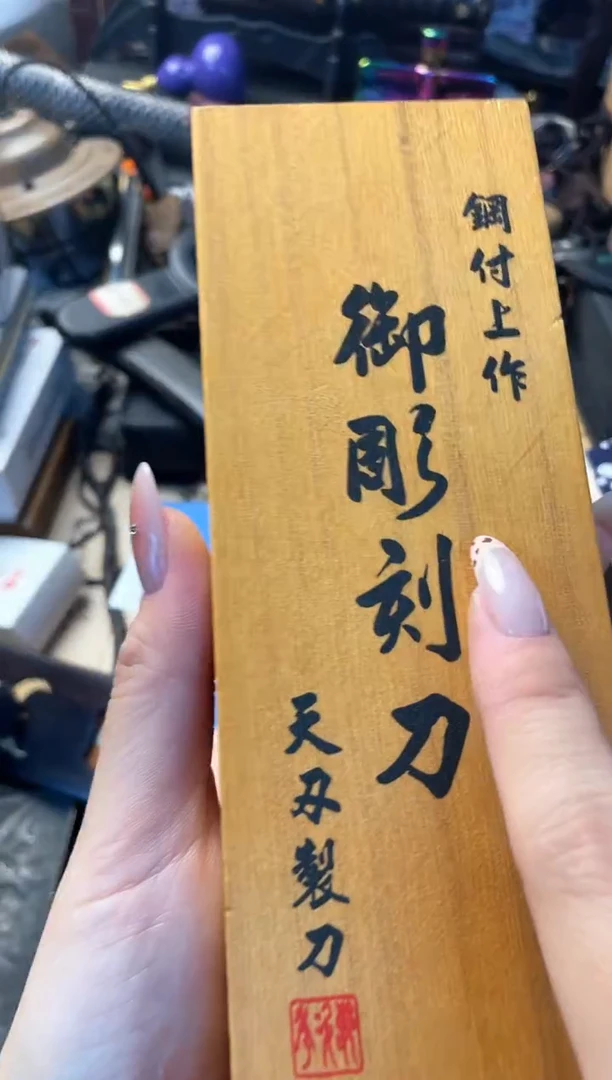 鋼付上作
御彫刻刀
天刃製刀